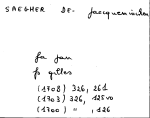 SAEGHER DE- Jacquemincken
fa Jan
fs gilles
(1708) 326, 261
(1703) 326, 125vo
(1700) " , 126